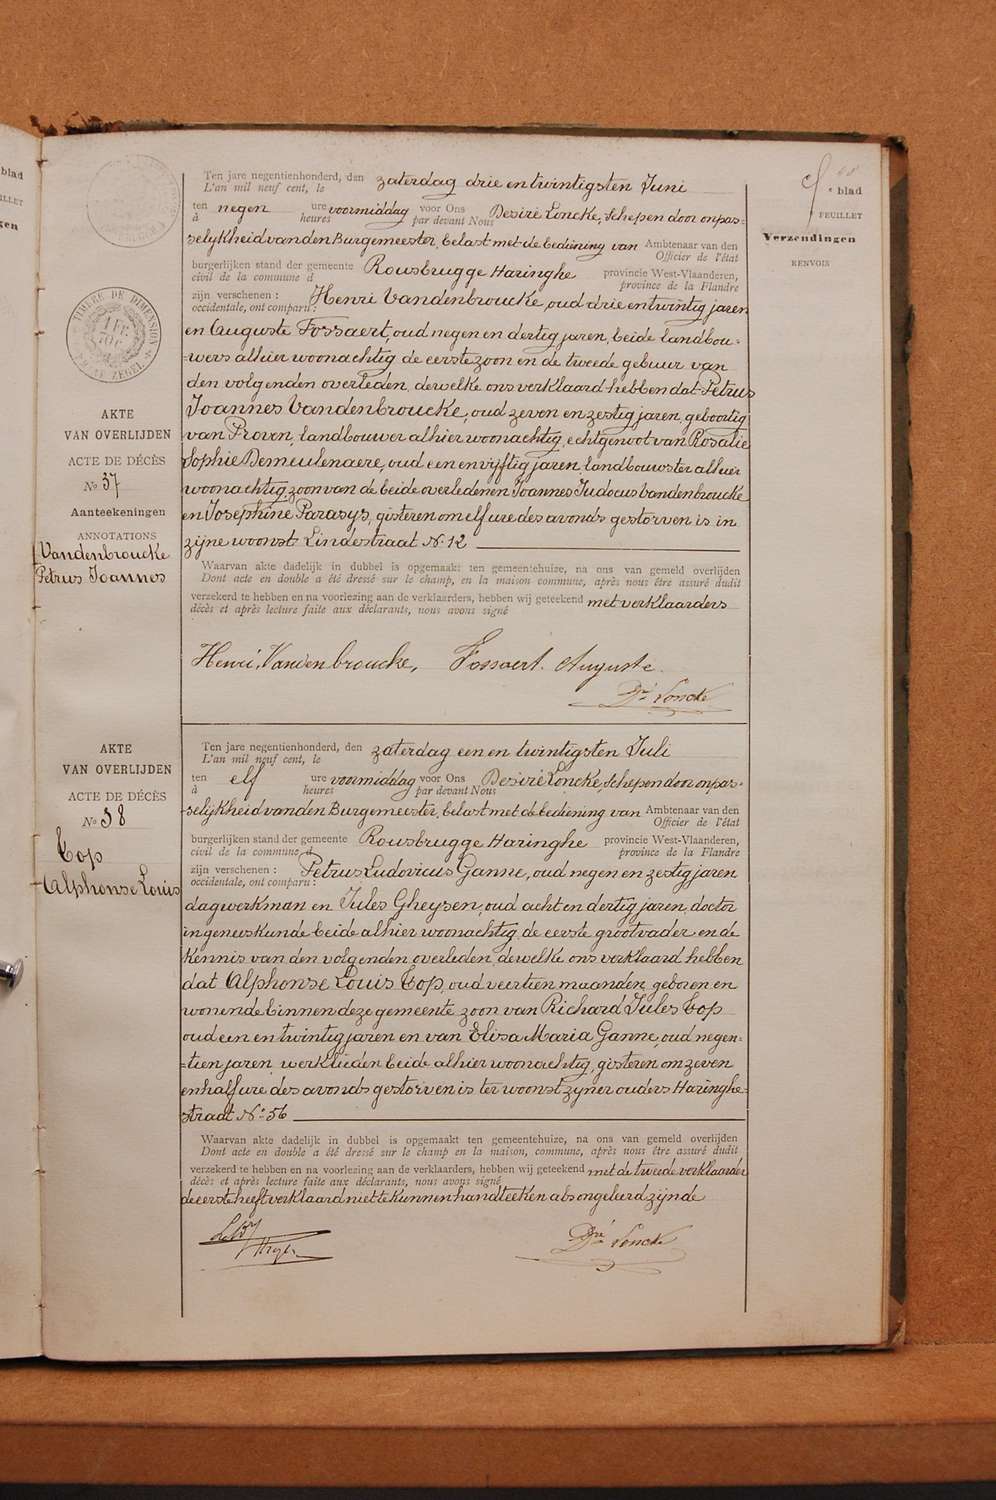 blad
FEUILLET
Verzendingen
RENVOIS
TIMBRE DE DIMENSION
ZEGEL
Ten jare negentienhonderd, den zaterdag drie en twintigsten Juni
L'an mil neuf cent, le
ten negen ure voormiddag voor Ons Desiré Loncke, Schepen door onpas=
à heures par devant Nous
selijkheid van den Burgemeester, belast met de bediening van Ambtenaar van den
Officier de l'état
burgerlijken stand der gemeente Rousbrugge Haringhe provincie West-Vlaanderen,
civil de la commune d province de la Flandre
zijn verschenen : Henri Vandenbroucke, oud drie en twintig jaren
occidentale, ont comparu :
en Auguste Fossaert, oud negen en dertig jaren, beide landbou-
-wers alhier woonachtig de eerste zoon en de tweede gebuur van
den volgenden overleden, dewelke ons verklaard hebben dat Petrus
Joannes Vandenbroucke, oud zeven en zestig jaren, geboortig
van Proven, landbouwer alhier woonachtig, echtgenoot van Rosalie
Sophie Demeulenaere, oud een en vijftig jaren, landbouwster alhier
woonachtig, zoon van de beide overledenen Joannes Judocus Vandenbroucke
en Josephine Parasys, gisteren om elf ure des avonds gestorven is in
zijne woonst Lindestraat No 12
AKTE
VAN OVERLIJDEN
ACTE DE DÉCÈS
No 37
Aanteekeningen
ANNOTATIONS
Vandenbroucke
Petrus Joannes
Waarvan akte dadelijk in dubbel is opgemaakt ten gemeentehuize, na ons van gemeld overlijden
Dont acte en double a été dressé sur le champ, en la maison commune, après nous être assuré dudit
verzekerd te hebben en na voorlezing aan de verklaarders, hebben wij geteekend met verklaarders
décès et après lecture faite aux déclarants, nous avons signé
Henri, Vandenbroucke, Fossaert Auguste.
Dré Loncke
AKTE
VAN OVERLIJDEN
ACTE DE DÉCÈS
No 38
Top
Alphonse Louis
Ten jare negentienhonderd, den zaterdag een en twintigsten Juli
L'an mil neuf cent, le
ten elf ure voormiddag voor Ons Desiré Loncke, Schepen door onpas-
à heures par devant Nous
-selijkheid van den Burgemeester, belast met de bediening van Ambtenaar van den
Officier de l'état
burgerlijken stand der gemeente Rousbrugge Haringhe provincie West-Vlaanderen,
civil de la commune d province de la Flandre
zijn verschenen : Petrus Ludovicus Ganne, oud negen en zestig jaren
occidentale, ont comparu :
dagwerkman en Jules Gheysen, oud acht en dertig jaren, doctor
in geneeskunde beide alhier woonachtig, de eerste grootvader en de
kennis van den volgenden overleden, dewelke ons verklaard hebben
dat Alphonse Louis Top, oud veertien maanden, geboren en
wonende binnen deze gemeente zoon van Richard Jules Top
oud een en twintig jaren en van Elisa Maria Ganne, oud negen-
-tien jaren, werklieden beide alhier woonachtig, gisteren om zeven
en half ure des avonds gestorven is ter woonst zijner ouders Haringhe-
straat No 56
Waarvan akte dadelijk in dubbel is opgemaakt ten gemeentehuize, na ons van gemeld overlijden
Dont acte en double a été dressé sur le champ, en la maison commune, après nous être assuré dudit
verzekerd te hebben en na voorlezing aan de verklaarders, hebben wij geteekend met de tweede verklaarder
décès et après lecture faite aux déclarants, nous avons signé
de eerste heeft verklaard niet te kunnen handteeken als ongeleerd zijnde
Dré Loncke